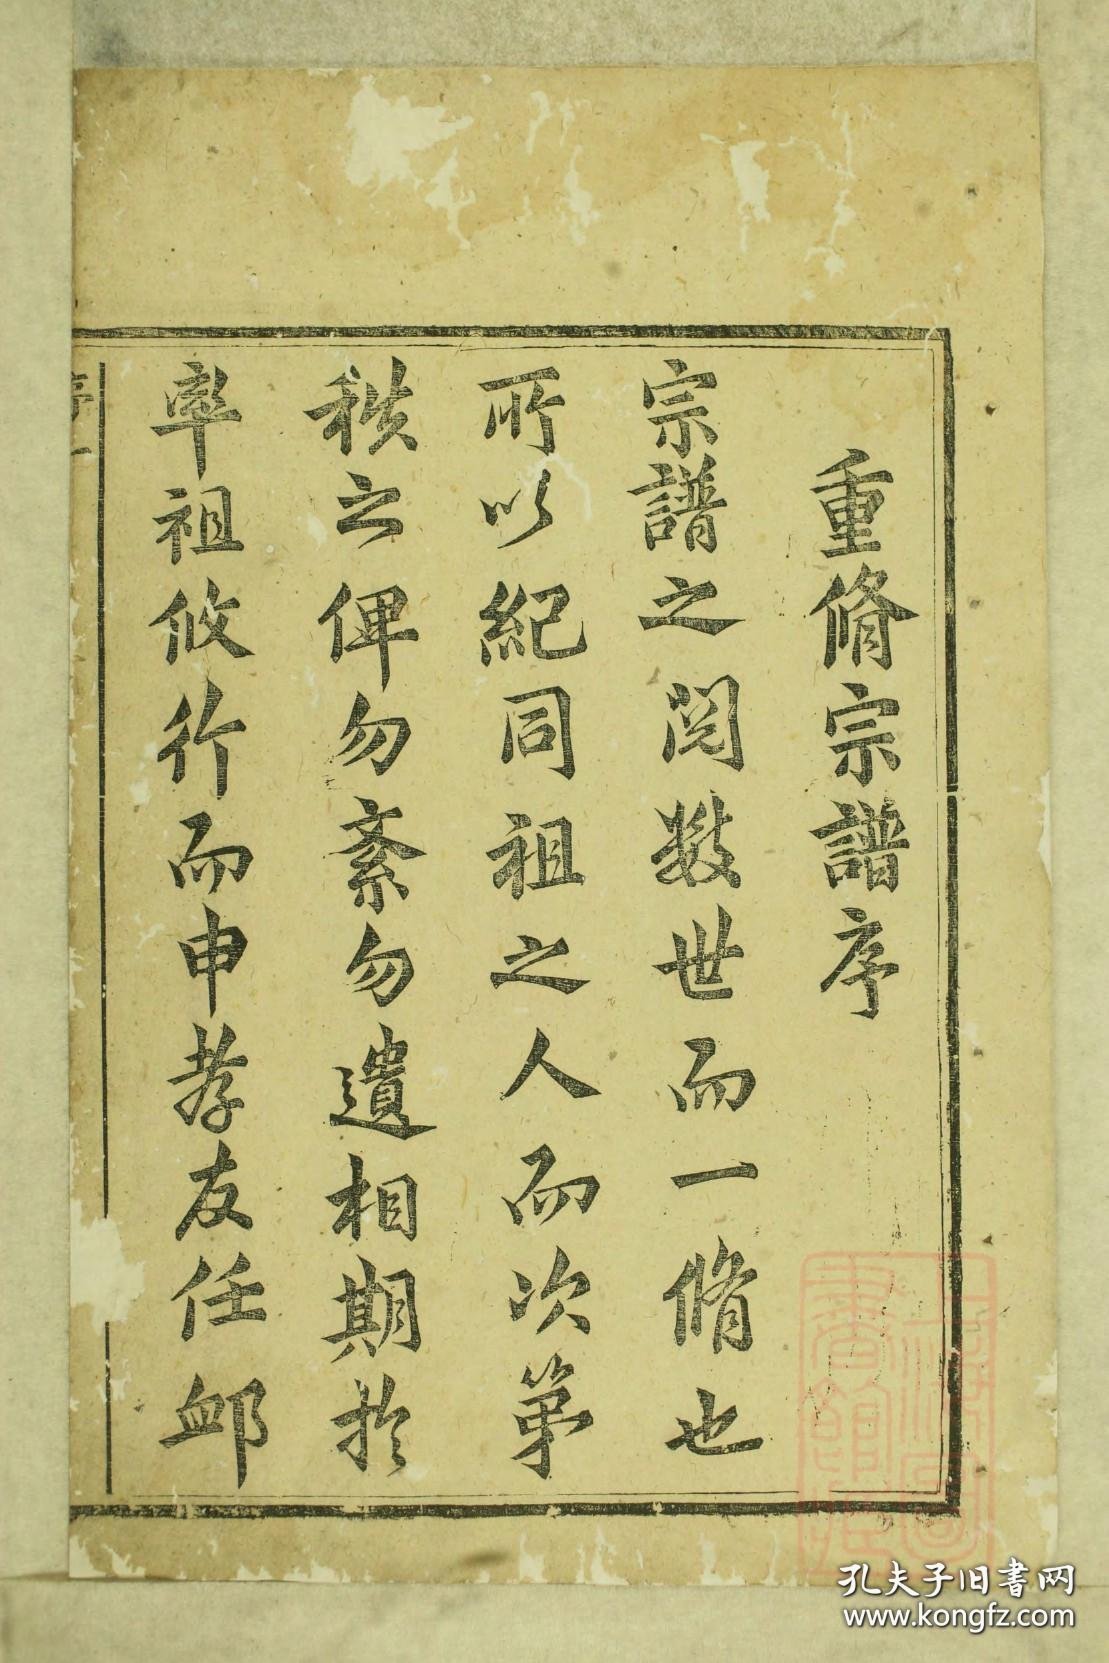 重脩宗譜序
宗譜之閱數世而一脩也
所以紀同祖之人而次第
秩之俾勿紊勿遺相期於
率祖攸行而申孝友任卹
序一
上海圖書館藏
孔夫子旧書网
www.kongfz.com